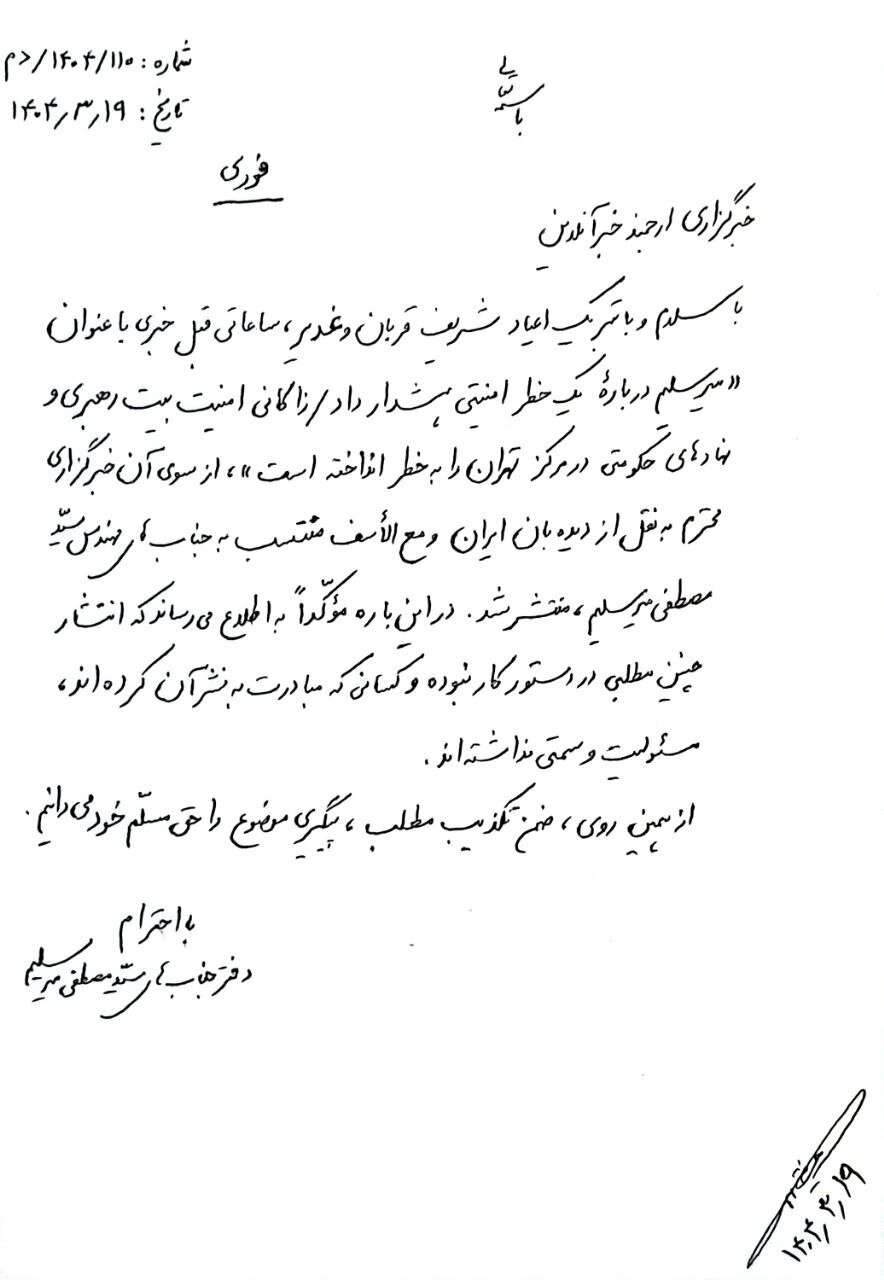 باسمه تعالی
شماره: ۱۴۰۴/۱۱۰/دم
تاریخ: ۱۴۰۴/۳/۱۹
فوری
خبرگزاری ارجمند خبرآنلاین
با سلام و با تبریک اعیاد شریف قربان و غدیر، ساعاتی قبل خبری با عنوان
«میرسلیم دربارهٔ یک خطر امنیتی هشدار داد/زاکانی امنیت بیت رهبری و
نهادهای حکومتی در مرکز تهران را به خطر انداخته است»، از سوی آن خبرگزاری
محترم به نقل از دیده بان ایران و مع الأسف منتسب به جناب آقای مهندس سیّد
مصطفی میرسلیم، منتشر شد. در این باره مؤکّداً به اطلاع می رساند که انتشار
چنین مطلبی در دستور کار نبوده و کسانی که مبادرت به نشر آن کرده اند،
مسئولیت و سمتی نداشته اند.
از همین روی، ضمن تکذیب مطلب، پیگیری موضوع را حق مسلّم خود می دانیم.
با احترام
دفتر جناب آقای سیّد مصطفی میرسلیم
۱۴۰۴/۳/۱۹